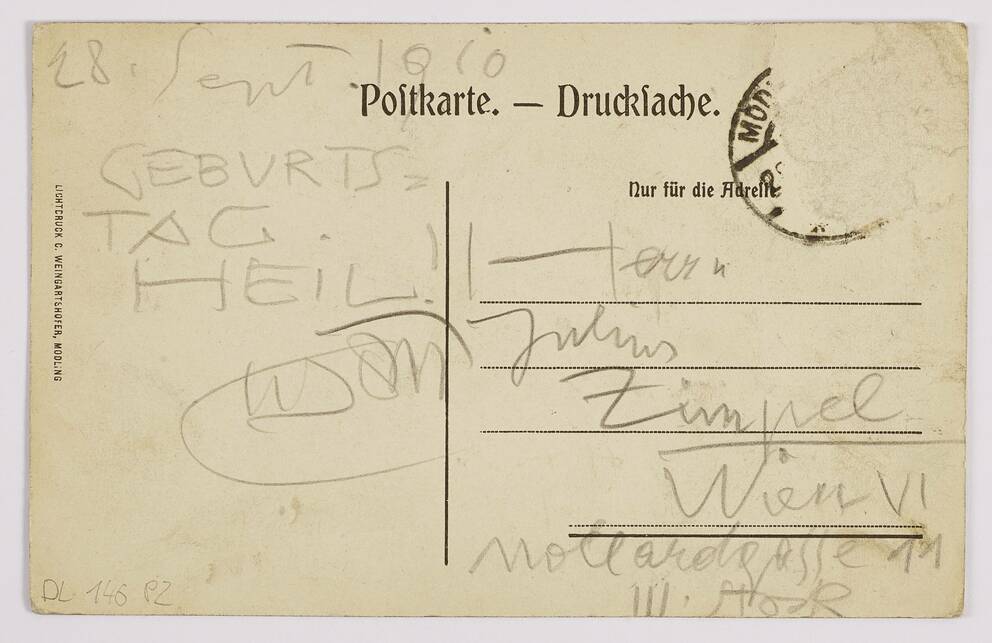 28. Sept. 1910
Postkarte. — Drucksache.
MÖD
GEBURTS=
TAG.
HEIL!
Nur für die Adresse
LICHTDRUCK C. WEINGARTSHOFER, MÖDLING
Herrn
Julius
Zimpel
Wien VI
Mollardgasse
III.
DL 146 PZ